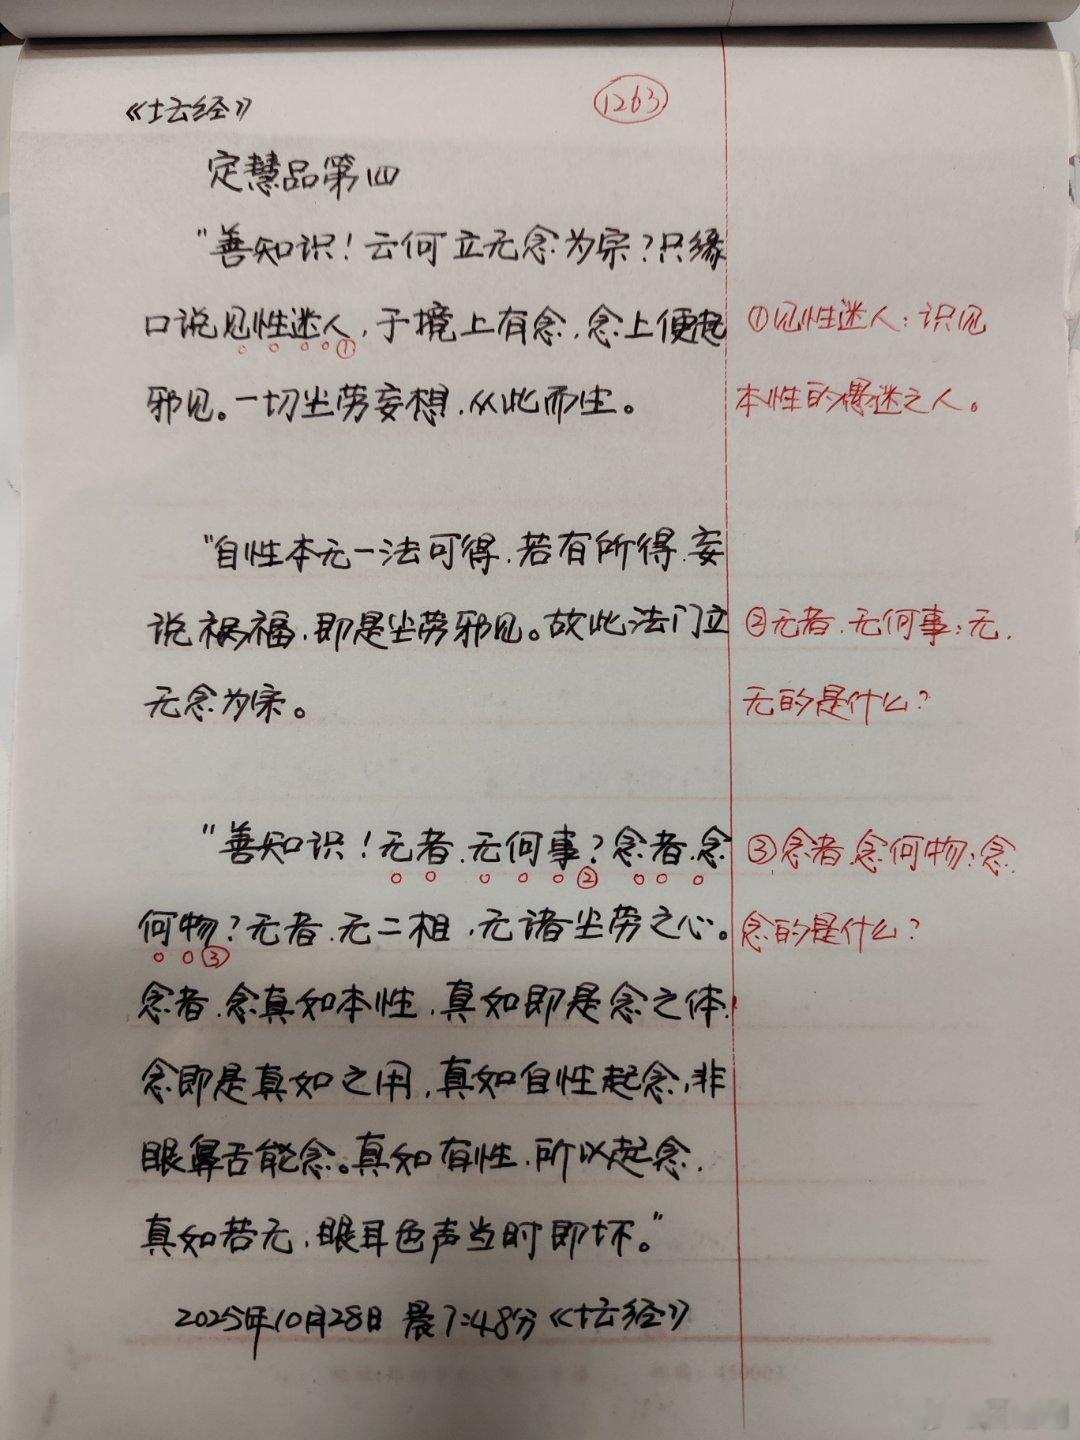 《坛经》
1263
定慧品第四
"善知识！云何立无念为宗？只缘
口说见性迷人，于境上有念，念上便起
①
邪见。一切尘劳妄想，从此而生。
①见性迷人：识见
本性的愚迷之人。
"自性本无一法可得，若有所得，妄
说祸福，即是尘劳邪见。故此法门立
无念为宗。
②无者，无何事：无，
无的是什么？
"善知识！无者，无何事？念者，念
②
何物？无者，无二相，无诸尘劳之心。
③
念者，念真如本性，真如即是念之体，
念即是真如之用，真如自性起念，非
眼鼻舌能念。真如有性，所以起念，
真如若无，眼耳色声当时即坏。"
③念者，念何物：念，
念的是什么？
2025年10月28日 晨7:48分《坛经》